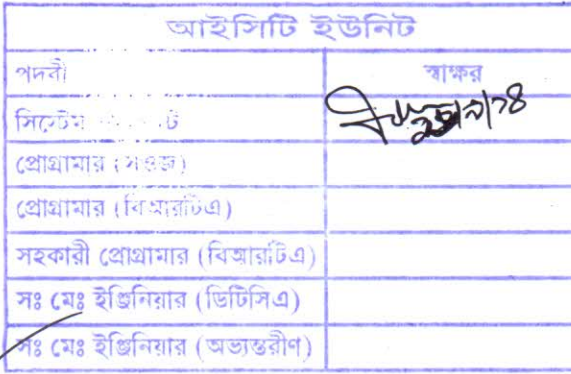 আইসিটি ইউনিট
পদবী স্বাক্ষর
সিস্টেম
প্রোগ্রামার (সওজ)
প্রোগ্রামার (বিআরটিএ)
সহকারী প্রোগ্রামার (বিআরটিএ)
সঃ মেঃ ইঞ্জিনিয়ার (ডিটিসিএ)
সঃ মেঃ ইঞ্জিনিয়ার (অভ্যন্তরীণ)